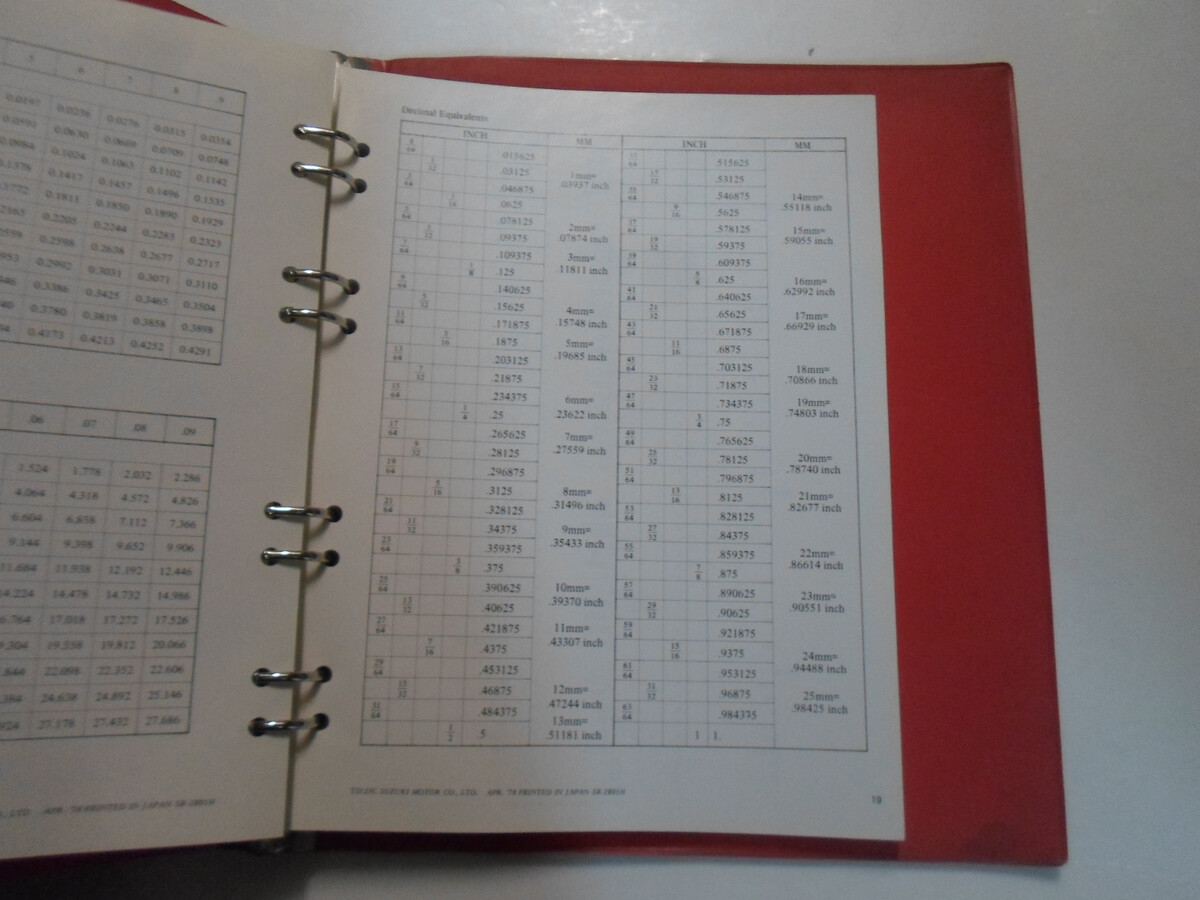 .5 .6 .7 .8 .9
0.0197 0.0236 0.0276 0.0315 0.0354
0.0599 0.0630 0.0669 0.0709 0.0748
0.0984 0.1024 0.1063 0.1102 0.1142
0.1378 0.1417 0.1457 0.1496 0.1535
0.1772 0.1811 0.1850 0.1890 0.1929
0.2205 0.2244 0.2283 0.2323
0.2598 0.2638 0.2677 0.2717
0.2992 0.3031 0.3071 0.3110
0.3386 0.3425 0.3465 0.3504
0.3780 0.3819 0.3858 0.3898
0.4173 0.4213 0.4252 0.4291
.06 .07 .08 .09
1.524 1.778 2.032 2.286
4.064 4.318 4.572 4.826
6.604 6.858 7.112 7.366
9.144 9.398 9.652 9.906
11.684 11.938 12.192 12.446
14.224 14.478 14.732 14.986
17.018 17.272 17.526
19.558 19.812 20.066
22.098 22.352 22.606
24.638 24.892 25.146
27.178 27.432 27.686
., LTD. APR. '78 PRINTED IN JAPAN SR-1801H
Decimal Equivalents
INCH MM INCH MM
.015625
1/32 .03125
3/64 .046875
1mm=
.03937 inch
1/16 .0625
5/64 .078125
3/32 .09375
2mm=
.07874 inch
7/64 .109375
1/8 .125
3mm=
.11811 inch
9/64 .140625
5/32 .15625
11/64 .171875
4mm=
.15748 inch
3/16 .1875
13/64 .203125
5mm=
.19685 inch
7/32 .21875
15/64 .234375
1/4 .25
6mm=
.23622 inch
17/64 .265625
9/32 .28125
7mm=
.27559 inch
19/64 .296875
5/16 .3125
21/64 .328125
8mm=
.31496 inch
11/32 .34375
23/64 .359375
9mm=
.35433 inch
3/8 .375
25/64 .390625
13/32 .40625
10mm=
.39370 inch
27/64 .421875
7/16 .4375
11mm=
.43307 inch
29/64 .453125
15/32 .46875
31/64 .484375
12mm=
.47244 inch
1/2 .5
13mm=
.51181 inch
33/64 .515625
17/32 .53125
35/64 .546875
9/16 .5625
14mm=
.55118 inch
37/64 .578125
19/32 .59375
15mm=
.59055 inch
39/64 .609375
5/8 .625
41/64 .640625
16mm=
.62992 inch
21/32 .65625
43/64 .671875
17mm=
.66929 inch
11/16 .6875
45/64 .703125
23/32 .71875
18mm=
.70866 inch
47/64 .734375
3/4 .75
19mm=
.74803 inch
49/64 .765625
25/32 .78125
51/64 .796875
20mm=
.78740 inch
13/16 .8125
53/64 .828125
21mm=
.82677 inch
27/32 .84375
55/64 .859375
7/8 .875
22mm=
.86614 inch
57/64 .890625
29/32 .90625
23mm=
.90551 inch
59/64 .921875
15/16 .9375
61/64 .953125
24mm=
.94488 inch
31/32 .96875
63/64 .984375
25mm=
.98425 inch
1 1.
SUZUKI MOTOR CO., LTD. APR. '78 PRINTED IN JAPAN SR-1801H
19